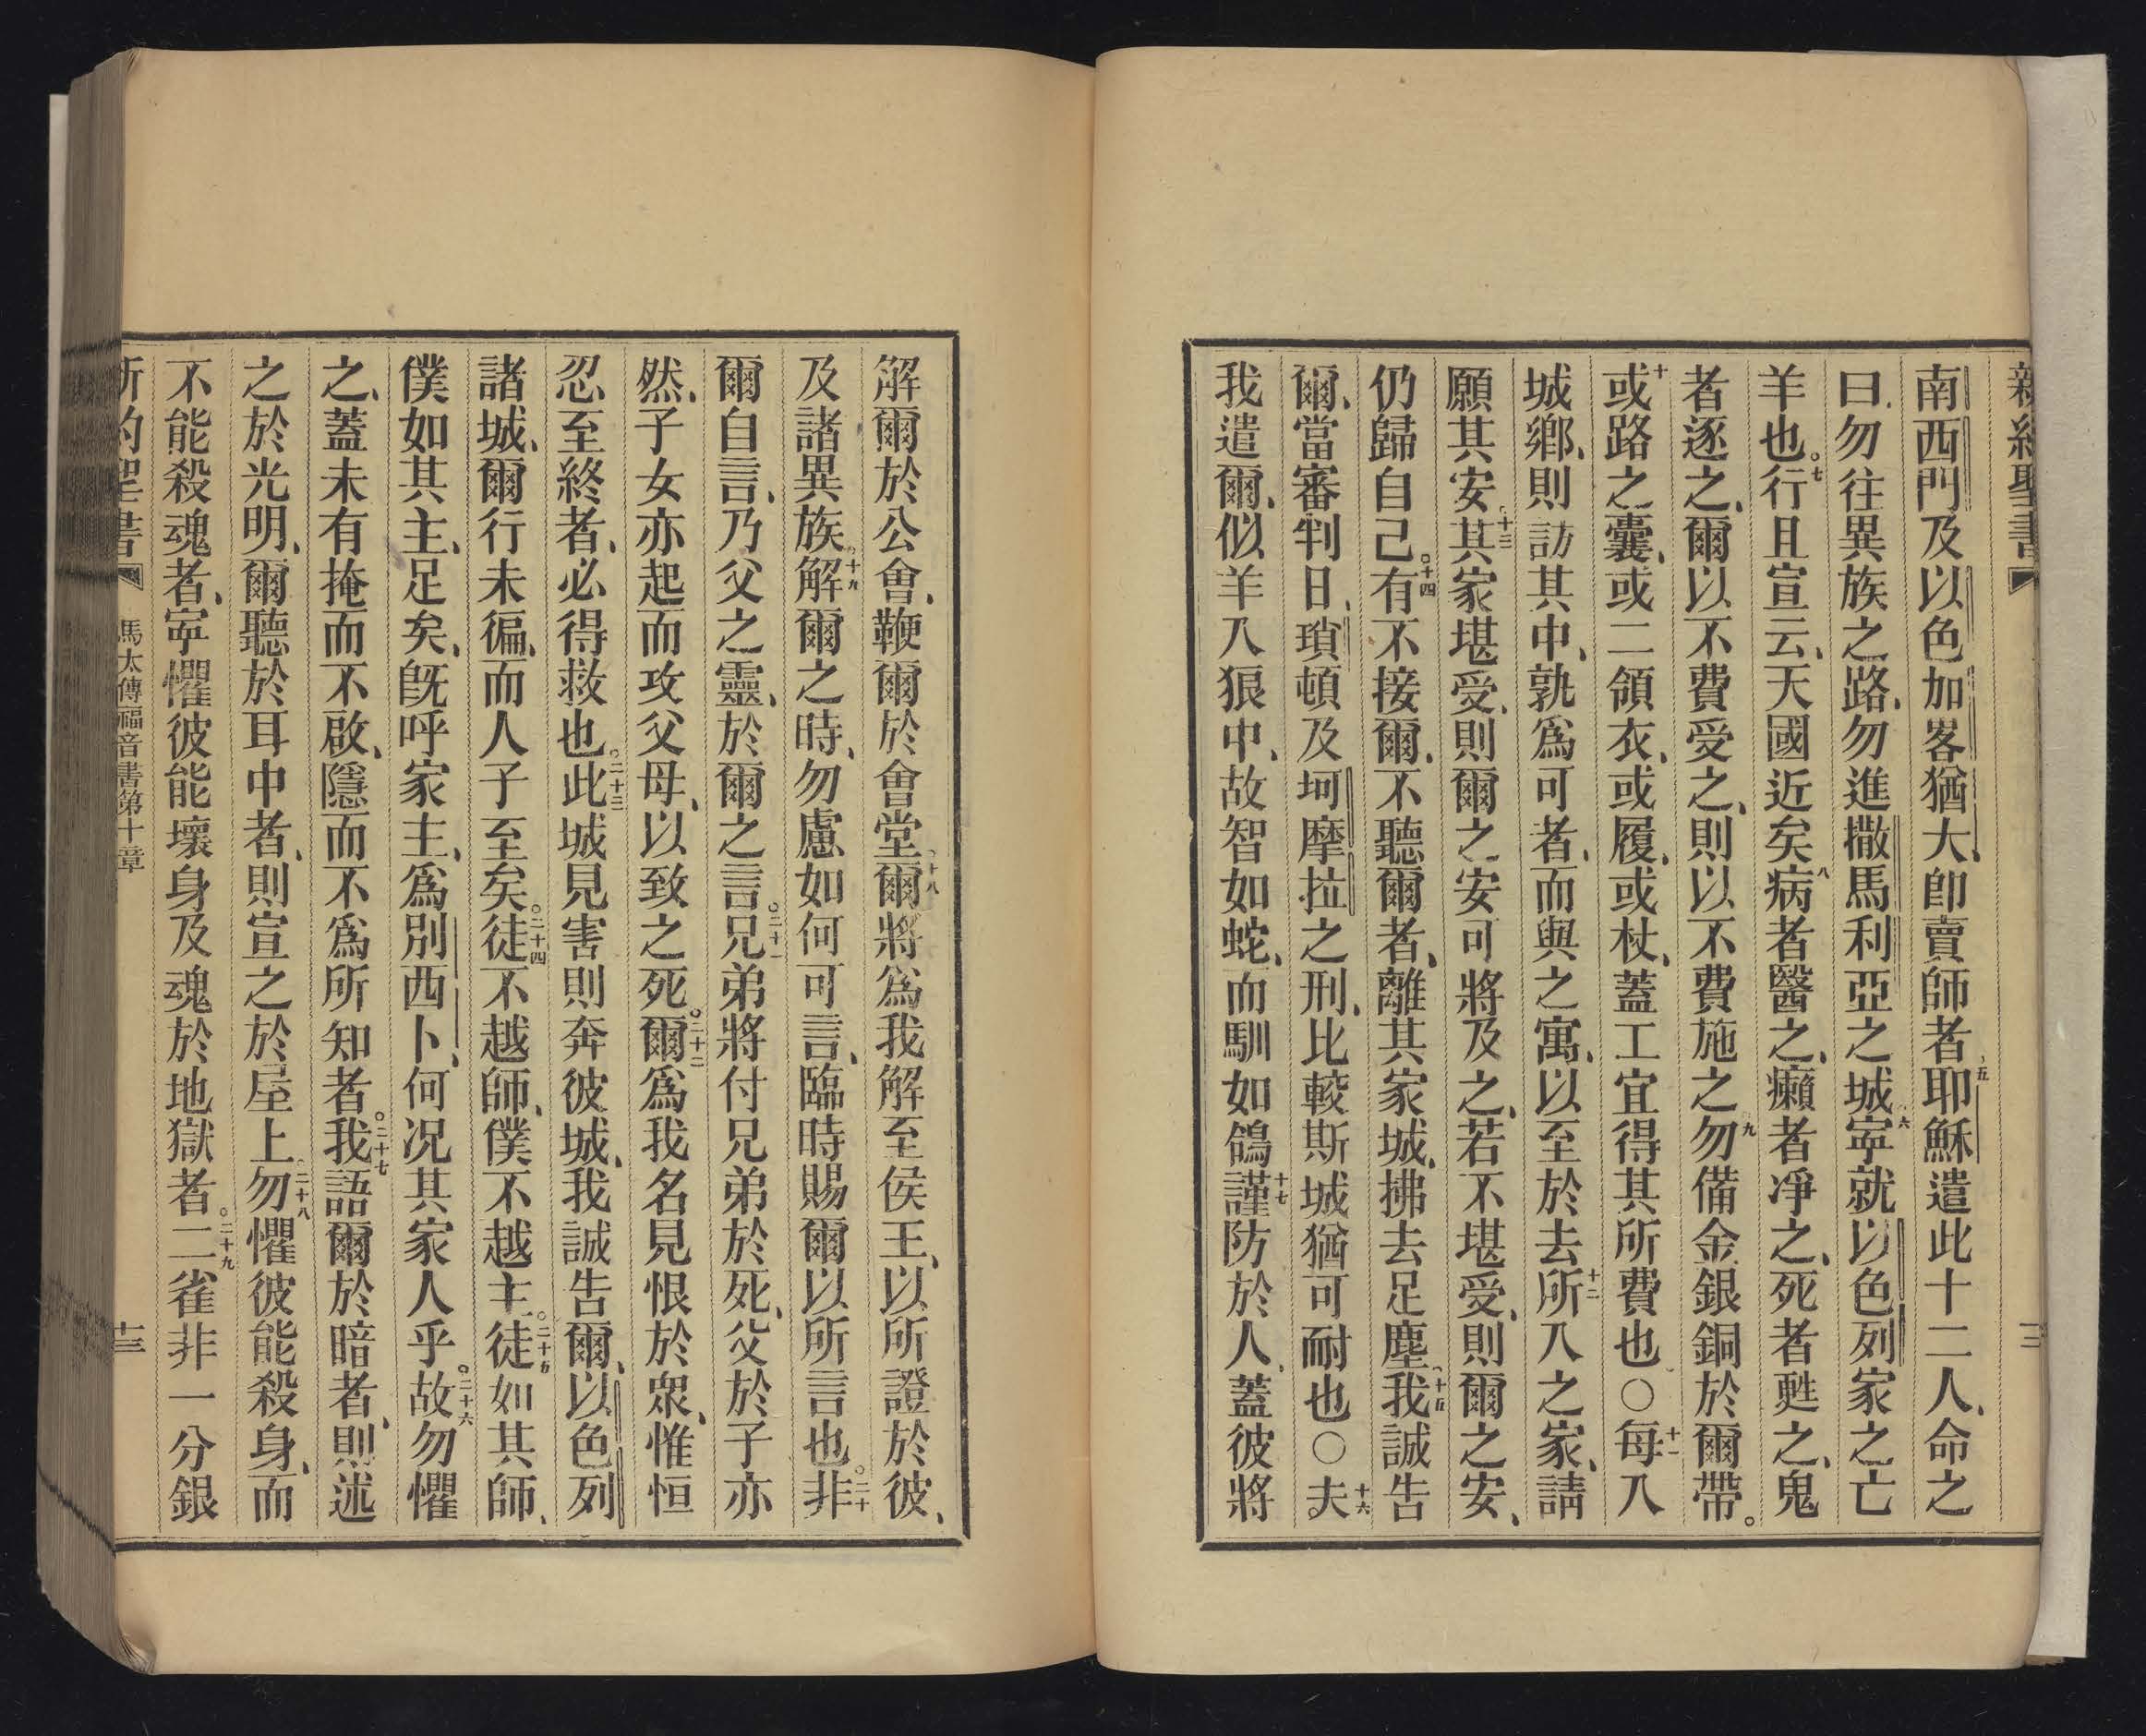 新約聖書
南西門及以色加畧猶大、卽賣師者、五耶穌遣此十二人、命之
曰、勿往異族之路、勿進撒馬利亞之城、六寧就以色列家之亡
羊也。七行且宣云、天國近矣、八病者醫之、癩者凈之、死者甦之、鬼
者逐之、爾以不費受之、則以不費施之、九勿備金銀銅於爾帶。
十或路之囊、或二領衣、或履、或杖、蓋工宜得其所費也、〇十一每入
城鄉、則訪其中、孰爲可者、而與之寓、以至於去、十二所入之家、請
願其安、十三其家堪受、則爾之安可將及之、若不堪受、則爾之安、
仍歸自己。十四有不接爾、不聽爾者、離其家城、拂去足塵、十五我誠告
爾、當審判日、瑣頓及坷摩拉之刑、比較斯城猶可耐也〇十六夫
我遣爾、似羊入狼中、故智如蛇、而馴如鴿、十七謹防於人、蓋彼將
解爾於公會、鞭爾於會堂、十八爾將爲我解至侯王、以所證於彼、
及諸異族、十九解爾之時、勿慮如何可言、臨時賜爾以所言也。二十非
爾自言、乃父之靈、於爾之言。二十一兄弟將付兄弟於死、父於子亦
然、子女亦起而攻父母、以致之死。二十二爾爲我名見恨於眾、惟恒
忍至終者、必得救也。二十三此城見害則奔彼城、我誠告爾、以色列
諸城、爾行未徧、而人子至矣。二十四徒不越師、僕不越主。二十五徒如其師、
僕如其主、足矣、旣呼家主、爲別西卜、何況其家人乎。二十六故勿懼
之、蓋未有掩而不啟、隱而不爲所知者。二十七我語爾於暗者、則述
之於光明、爾聽於耳中者、則宣之於屋上、二十八勿懼彼能殺身、而
不能殺魂者、寧懼彼能壞身及魂於地獄者。二十九二雀非一分銀
新約聖書 馬太傳福音書第十章 十三